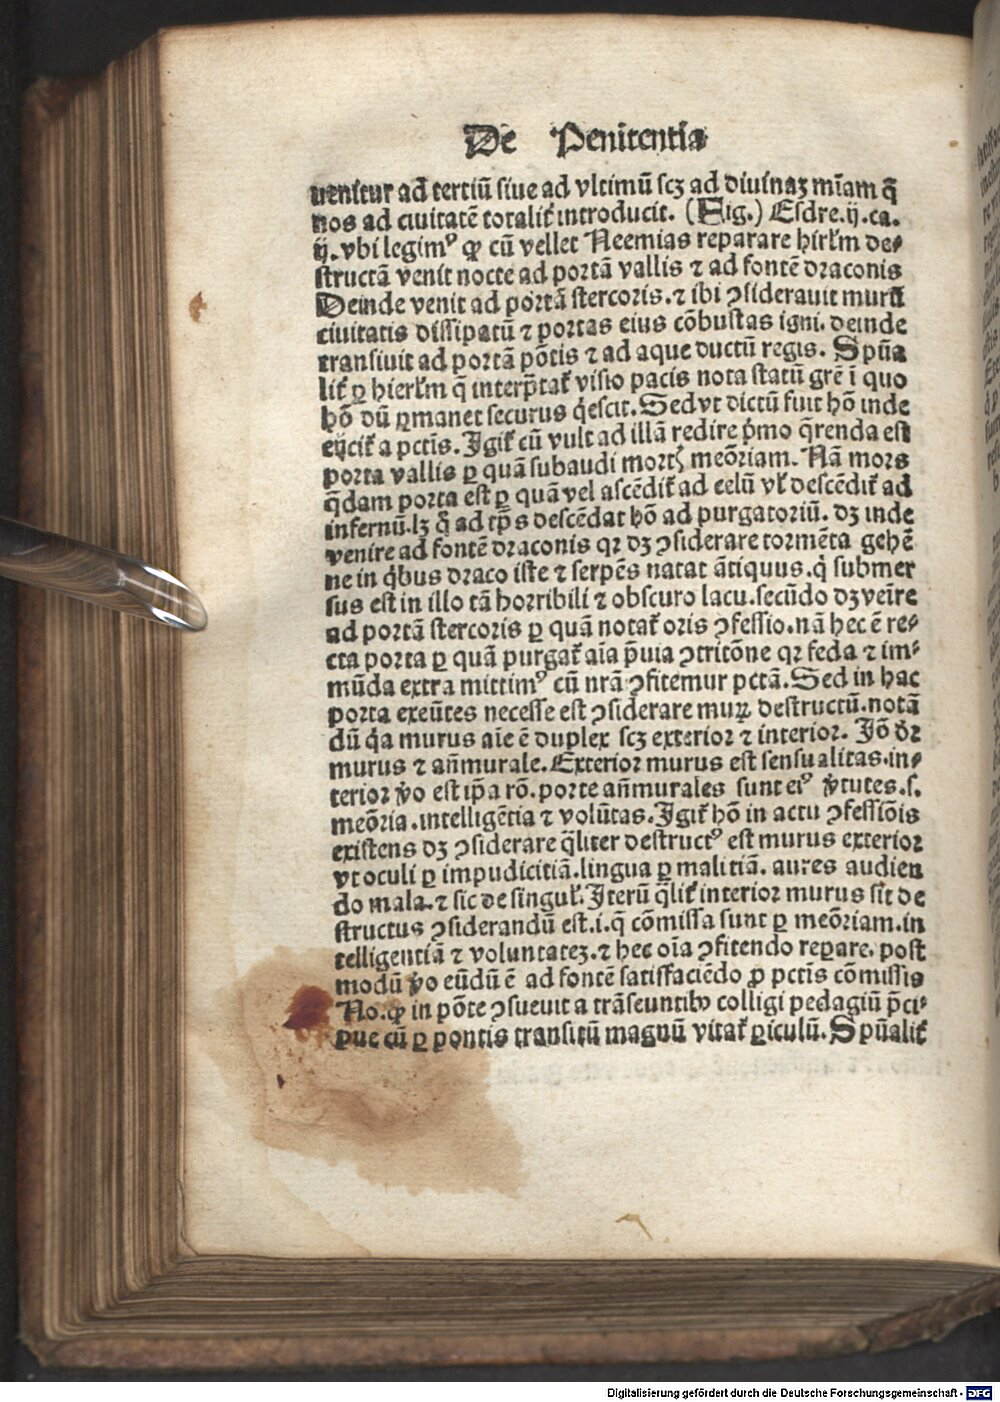 De Penitentia
uenitur ad tertiū siue ad vltimū scꝫ ad diuinaꝫ mīam q̄
nos ad ciuitatē totalit̉ introducit. (Fig.) Esdre.ij.ca.
ij. vbi legimꝰ ꝙ cū vellet Neemias reparare hirl̓m de⸗
structā venit nocte ad portā vallis ⁊ ad fontē draconis
Deinde venit ad portā stercoris.⁊ ibi ꝯsiderauit murū
ciuitatis dissipatū ⁊ portas eius cōbustas igni. deinde
transiuit ad portā pōtis ⁊ ad aque ductū regis. Spūa
lit̉ ꝑ hierl̓m q̄ interp̄tat̉ visio pacis nota statū grē ī quo
hō dū ꝑmanet securus q̇escit. Sed vt dictū fuit hō inde
eijcit̉ a pctīs. Igit̉ cū vult ad illā redire p̓mo q̄renda est
porta vallis ꝑ quā subaudi mortꝭ meōriam. Nā mors
q̄dam porta est ꝑ quā vel ascēdit̉ ad celū vl̓ descēdit̉ ad
infernū.lꝫ q̇ ad tp̄s descēdat hō ad purgatoriū. dꝫ inde
venire ad fontē draconis qꝛ dꝫ ꝯsiderare tormēta gehē
ne in q̇bus draco iste ⁊ serpēs natat ātiquus.q̇ submer
sus est in illo tā horribili ⁊ obscuro lacu.secūdo dꝫ veīre
ad portā stercoris ꝑ quā notat̉ oris ꝯfessio.nā hec ē re⸗
cta porta ꝑ quā purgat̉ aīa p̄uia ꝯtritōne qꝛ feda ⁊ im⸗
mūda extra mittimꝰ cū nrā ꝯfitemur pctā. Sed in hac
porta exeūtes necesse est ꝯsiderare muꝝ destructū.notā
dū q̇a murus aīe ē duplex scꝫ exterior ⁊ interior. Iō dꝛ
murus ⁊ an̄murale. Exterior murus est sensualitas.in⸗
terior v̓o est ip̄a rō. porte an̄murales sunt eiꝰ v̓tutes.s.
meōria.intelligētia ⁊ volūtas. Igit̉ hō in actu ꝯfessiōis
existens dꝫ ꝯsiderare q̄liter destructꝰ est murus exterior
vt oculi ꝑ impudicitiā.lingua ꝑ malitiā. aures audien
do mala.⁊ sic de singul̓. Iterū q̄lit̉ interior murus sit de
structus ꝯsiderandū est.i.q̄ cōmissa sunt ꝑ meōriam.in
telligentiā ⁊ voluntateꝫ.⁊ hec oīa ꝯfitendo repare. post
modū v̓o eūdū ē ad fontē satisfaciēdo ꝓ pctīs cōmissis
No.ꝙ in pōte ꝯsueuit a trāseuntibꝰ colligi pedagiū p̄ci⸗
pue cū ꝑ pontis transitū magnū vitat̉ ꝑiculū. Spūalit̉
Digitalisierung gefördert durch die Deutsche Forschungsgemeinschaft - DFG